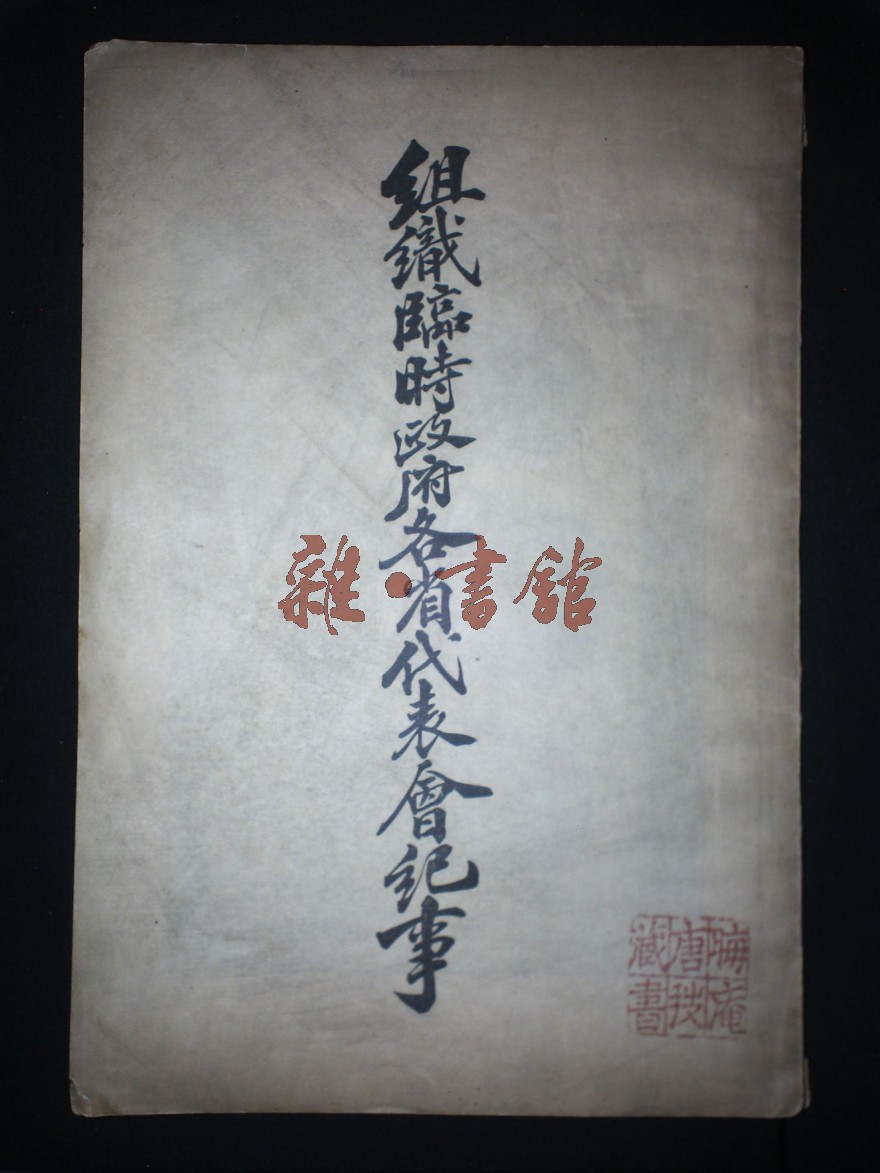 組織臨時政府各省代表會紀事
雜·書館
晦庵
唐弢
藏書